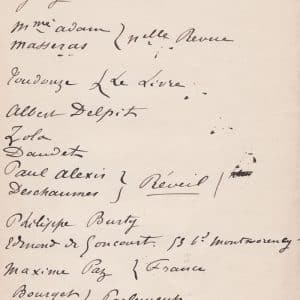 Mme adam } nelle Revue
masseras
Toudouze { Le Livre
Albert Delpit
Zola
Daudet
Paul Alexis } Réveil
Deschaumes
Philippe Burty
Edmond de Goncourt. 53 bd montmorency
Maxime Paz } France
Bourget } Parlement